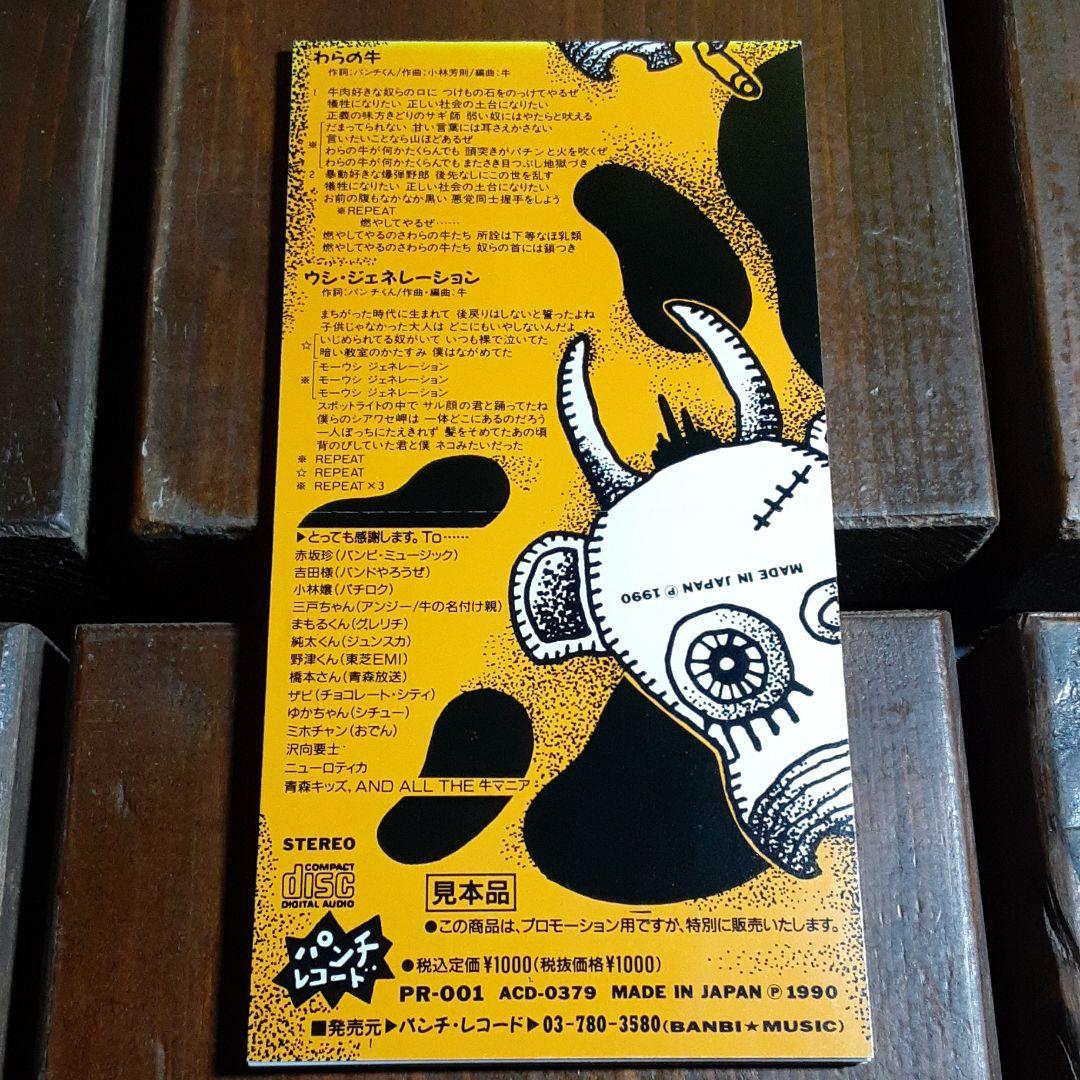 わらの牛
作詞:パンチくん/作曲:小林芳則/編曲:牛
1 牛肉好きな奴らの口に つけもの石をのっけてやるぜ
犠牲になりたい 正しい社会の土台になりたい
正義の味方きどりのサギ師 弱い奴にはやたらと吠える
だまってられない 甘い言葉には耳さえかさない
言いたいことなら山ほどあるぜ
※ わらの牛が何かたくらんでも 頭突きがパチンと火を吹くぜ
わらの牛が何かたくらんでも またさき目つぶし地獄づき
2 暴動好きな爆弾野郎 後先なしにこの世を乱す
犠牲になりたい 正しい社会の土台になりたい
お前の腹もなかなか黒い 悪党同士握手をしよう
※REPEAT
燃やしてやるぜ……
燃やしてやるのさわらの牛たち 所詮は下等なほ乳類
燃やしてやるのさわらの牛たち 奴らの首には鎖つき
ウシ・ジェネレーション
作詞:パンチくん/作曲・編曲:牛
まちがった時代に生まれて 後戻りはしないと誓ったよね
子供じゃなかった大人は どこにもいやしないんだよ
☆ いじめられてる奴がいて いつも裸で泣いてた
暗い教室のかたすみ 僕はながめてた
モーウシ ジェネレーション
※ モーウシ ジェネレーション
モーウシ ジェネレーション
スポットライトの中で サル顔の君と踊ってたね
僕らのシアワセ岬は 一体どこにあるのだろう
一人ぼっちにたえきれず 髪をそめてたあの頃
背のびしていた君と僕 ネコみたいだった
※ REPEAT
☆ REPEAT
※ REPEAT×3
▶とっても感謝します。To……
赤坂珍(バンビ・ミュージック)
吉田様(バンドやろうぜ)
小林嬢(パチロク)
三戸ちゃん(アンジー/牛の名付け親)
まもるくん(グレリチ)
純太くん(ジュンスカ)
野津くん(東芝EMI)
橋本さん(青森放送)
ザビ(チョコレート・シティ)
ゆかちゃん(シチュー)
ミホチャン(おでん)
沢向要士
ニューロティカ
青森キッズ, AND ALL THE 牛マニア
MADE IN JAPAN Ⓟ 1990
STEREO
COMPACT
disc
DIGITAL AUDIO
見本品
●この商品は、プロモーション用ですが、特別に販売いたします。
パンチ
レコード
●税込定価¥1000(税抜価格¥1000)
PR-001 ACD-0379 MADE IN JAPAN Ⓟ 1990
■発売元▶パンチ・レコード▶03-780-3580(BANBI★MUSIC)